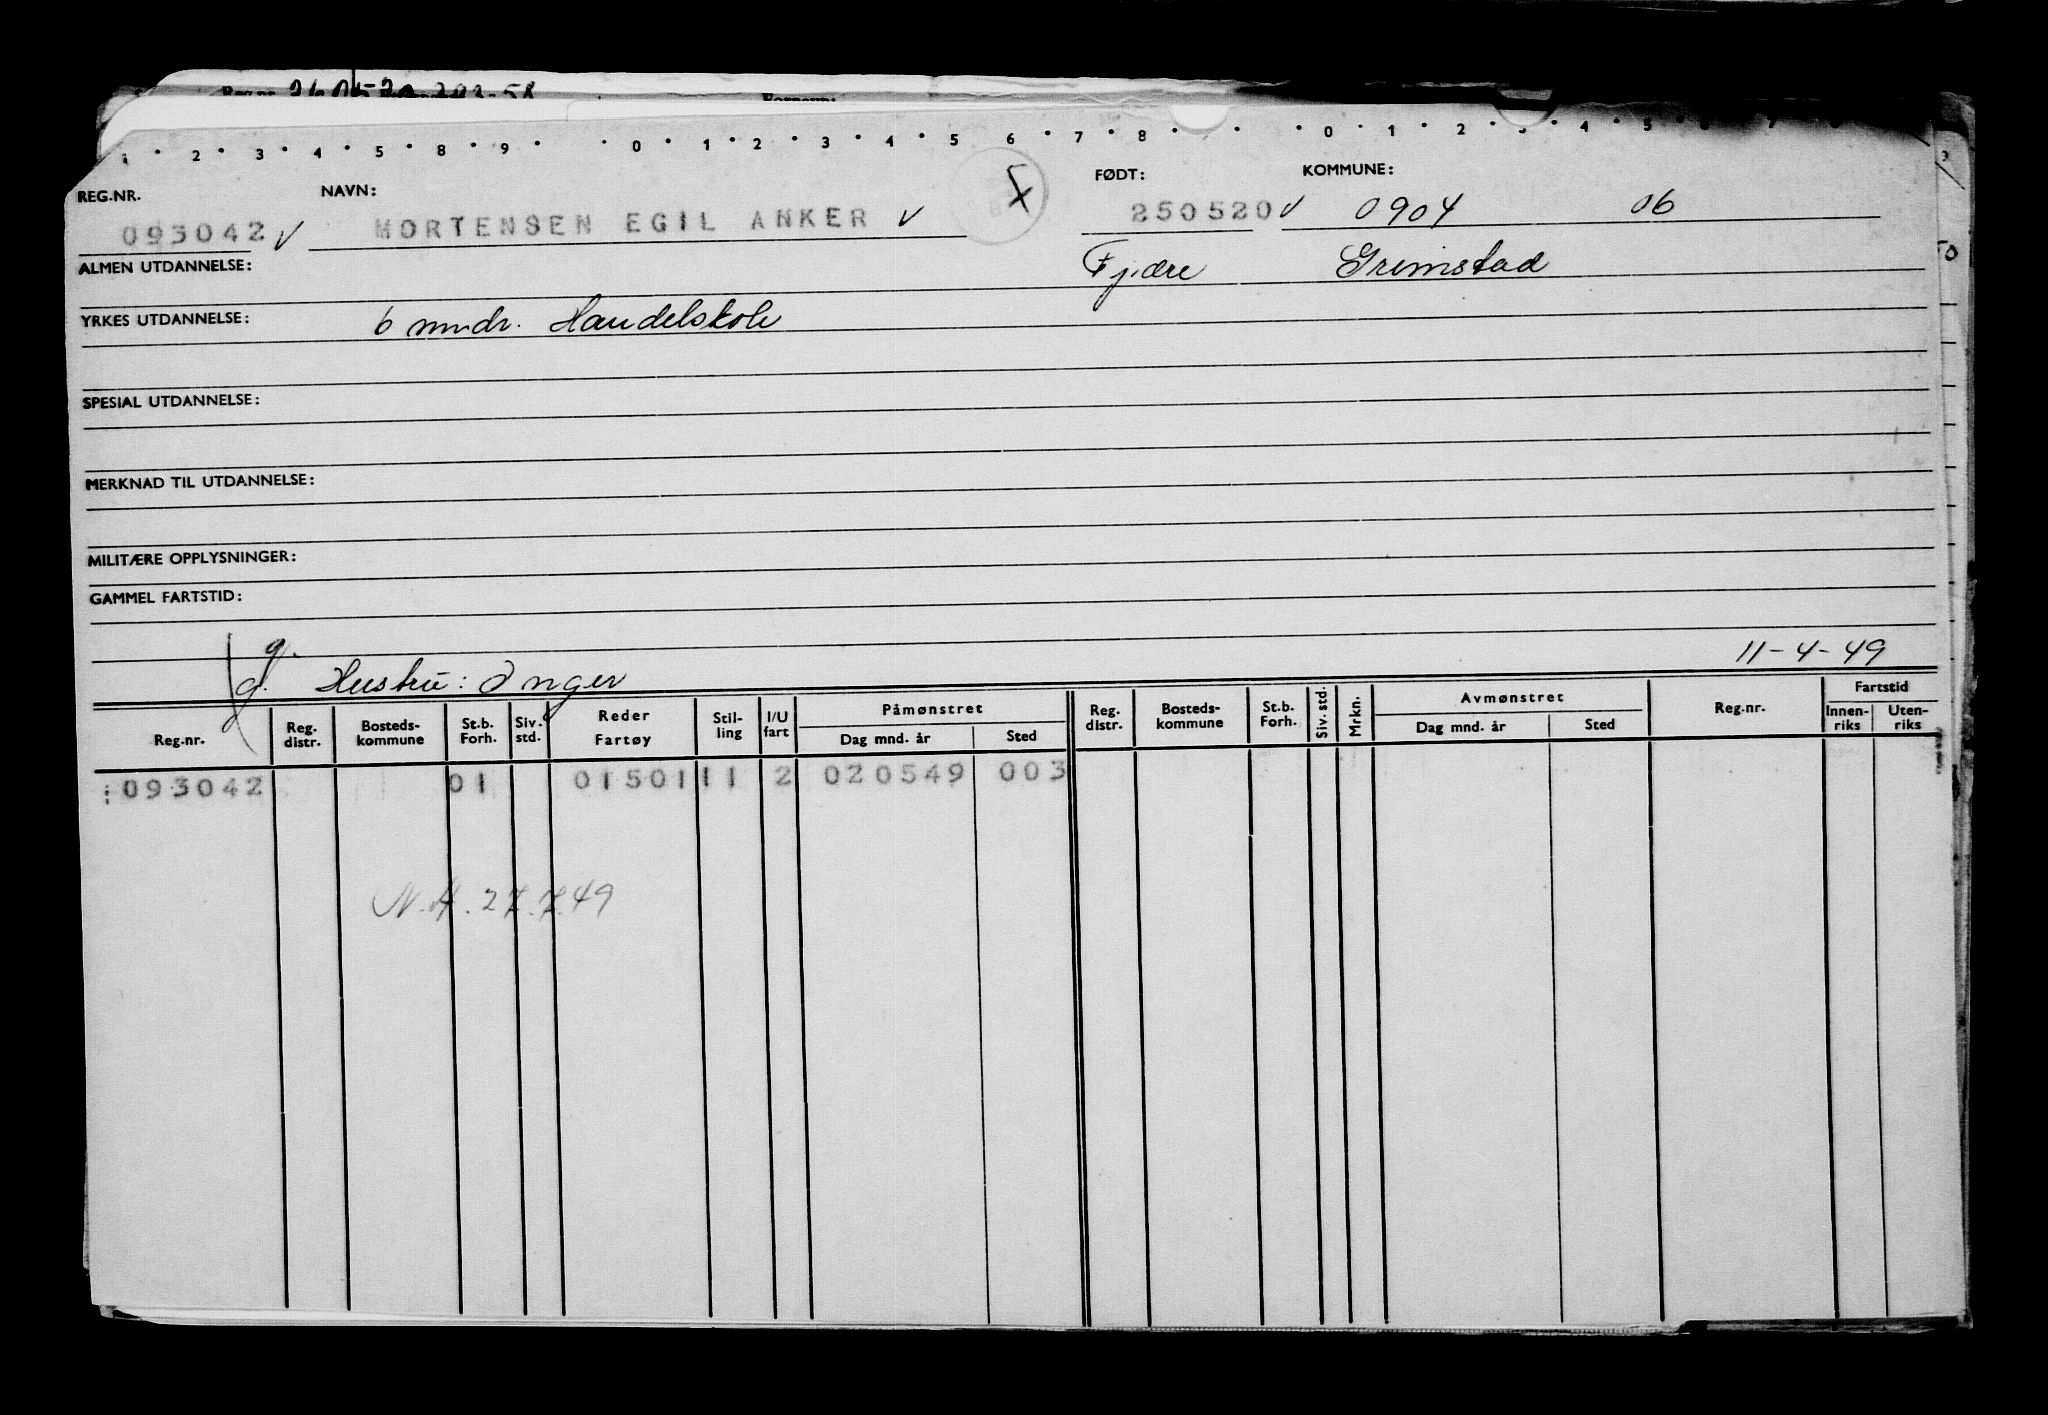 1 · 2 · 3 · 4 · 5 · 8 · 9 · · 0 · 1 · 2 · 3 · 4 · 5 · 6 · 7 · 8 · · · 0 · 1 · 2 · 3 · 4 · 5 · 6 · 7
REG.NR. NAVN: FØDT: KOMMUNE:
093042 v MORTENSEN EGIL ANKER v X 250520 v 0904 06
ALMEN UTDANNELSE: Fjære Grimstad
YRKES UTDANNELSE: 6 mndr. Handelskole
SPESIAL UTDANNELSE:
MERKNAD TIL UTDANNELSE:
MILITÆRE OPPLYSNINGER:
GAMMEL FARTSTID:
g.
g. Hustru: Inger 11-4-49
Reg.nr. Reg. distr. Bosteds-kommune St.b. Forh. Siv. std. Reder Fartøy Stil-ling I/U fart Påmønstret Dag mnd. år Sted Reg. distr. Bosteds-kommune St.b. Forh. Siv. std. Mrkn. Avmønstret Dag mnd. år Sted Reg.nr. Fartstid Innen-riks Uten-riks
093042 01 01501 11 2 020549 003
N.A. 27.7.49